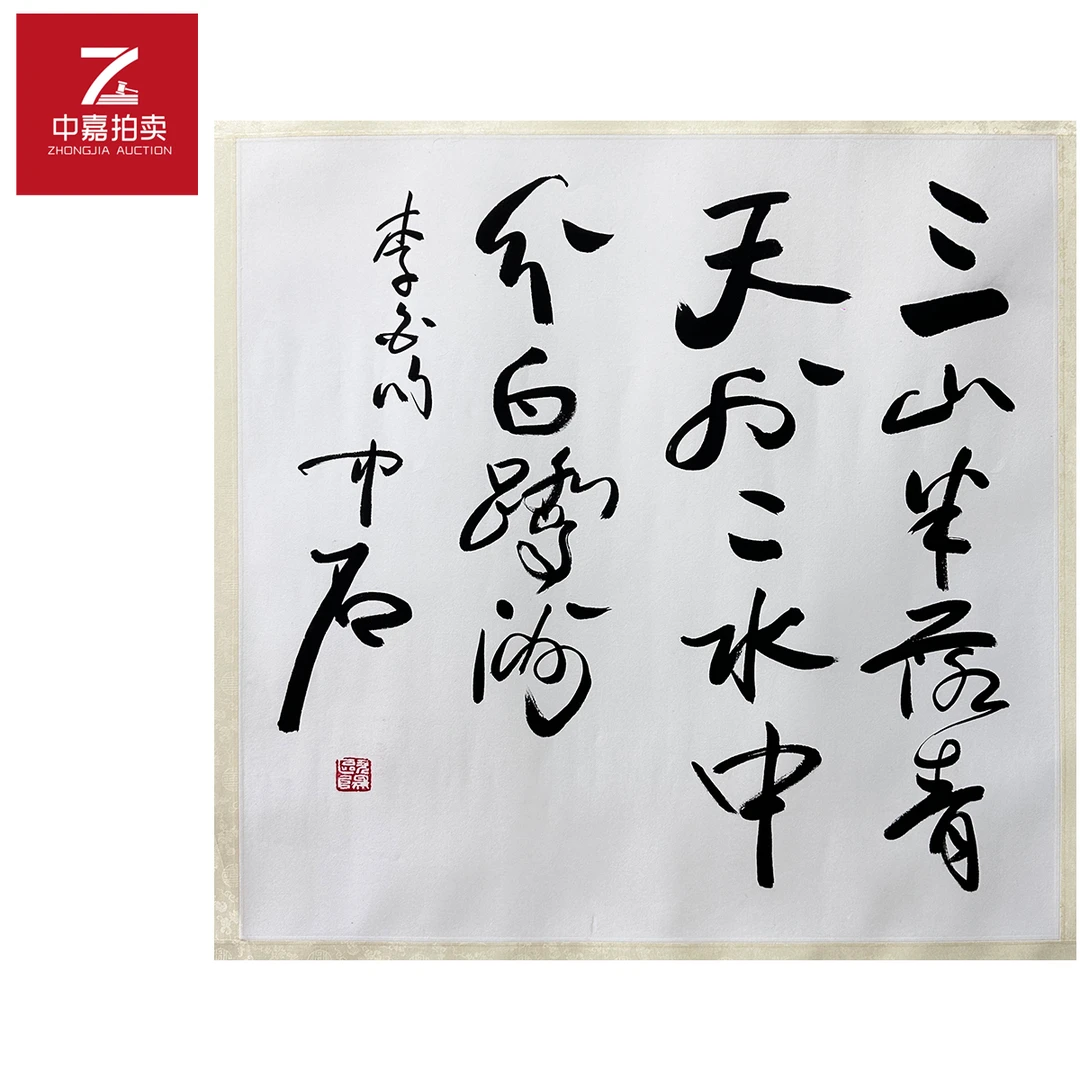 中嘉拍卖
ZHONGJIA AUCTION
三山半落青
天外二水中
分白鷺洲
李白句
中石